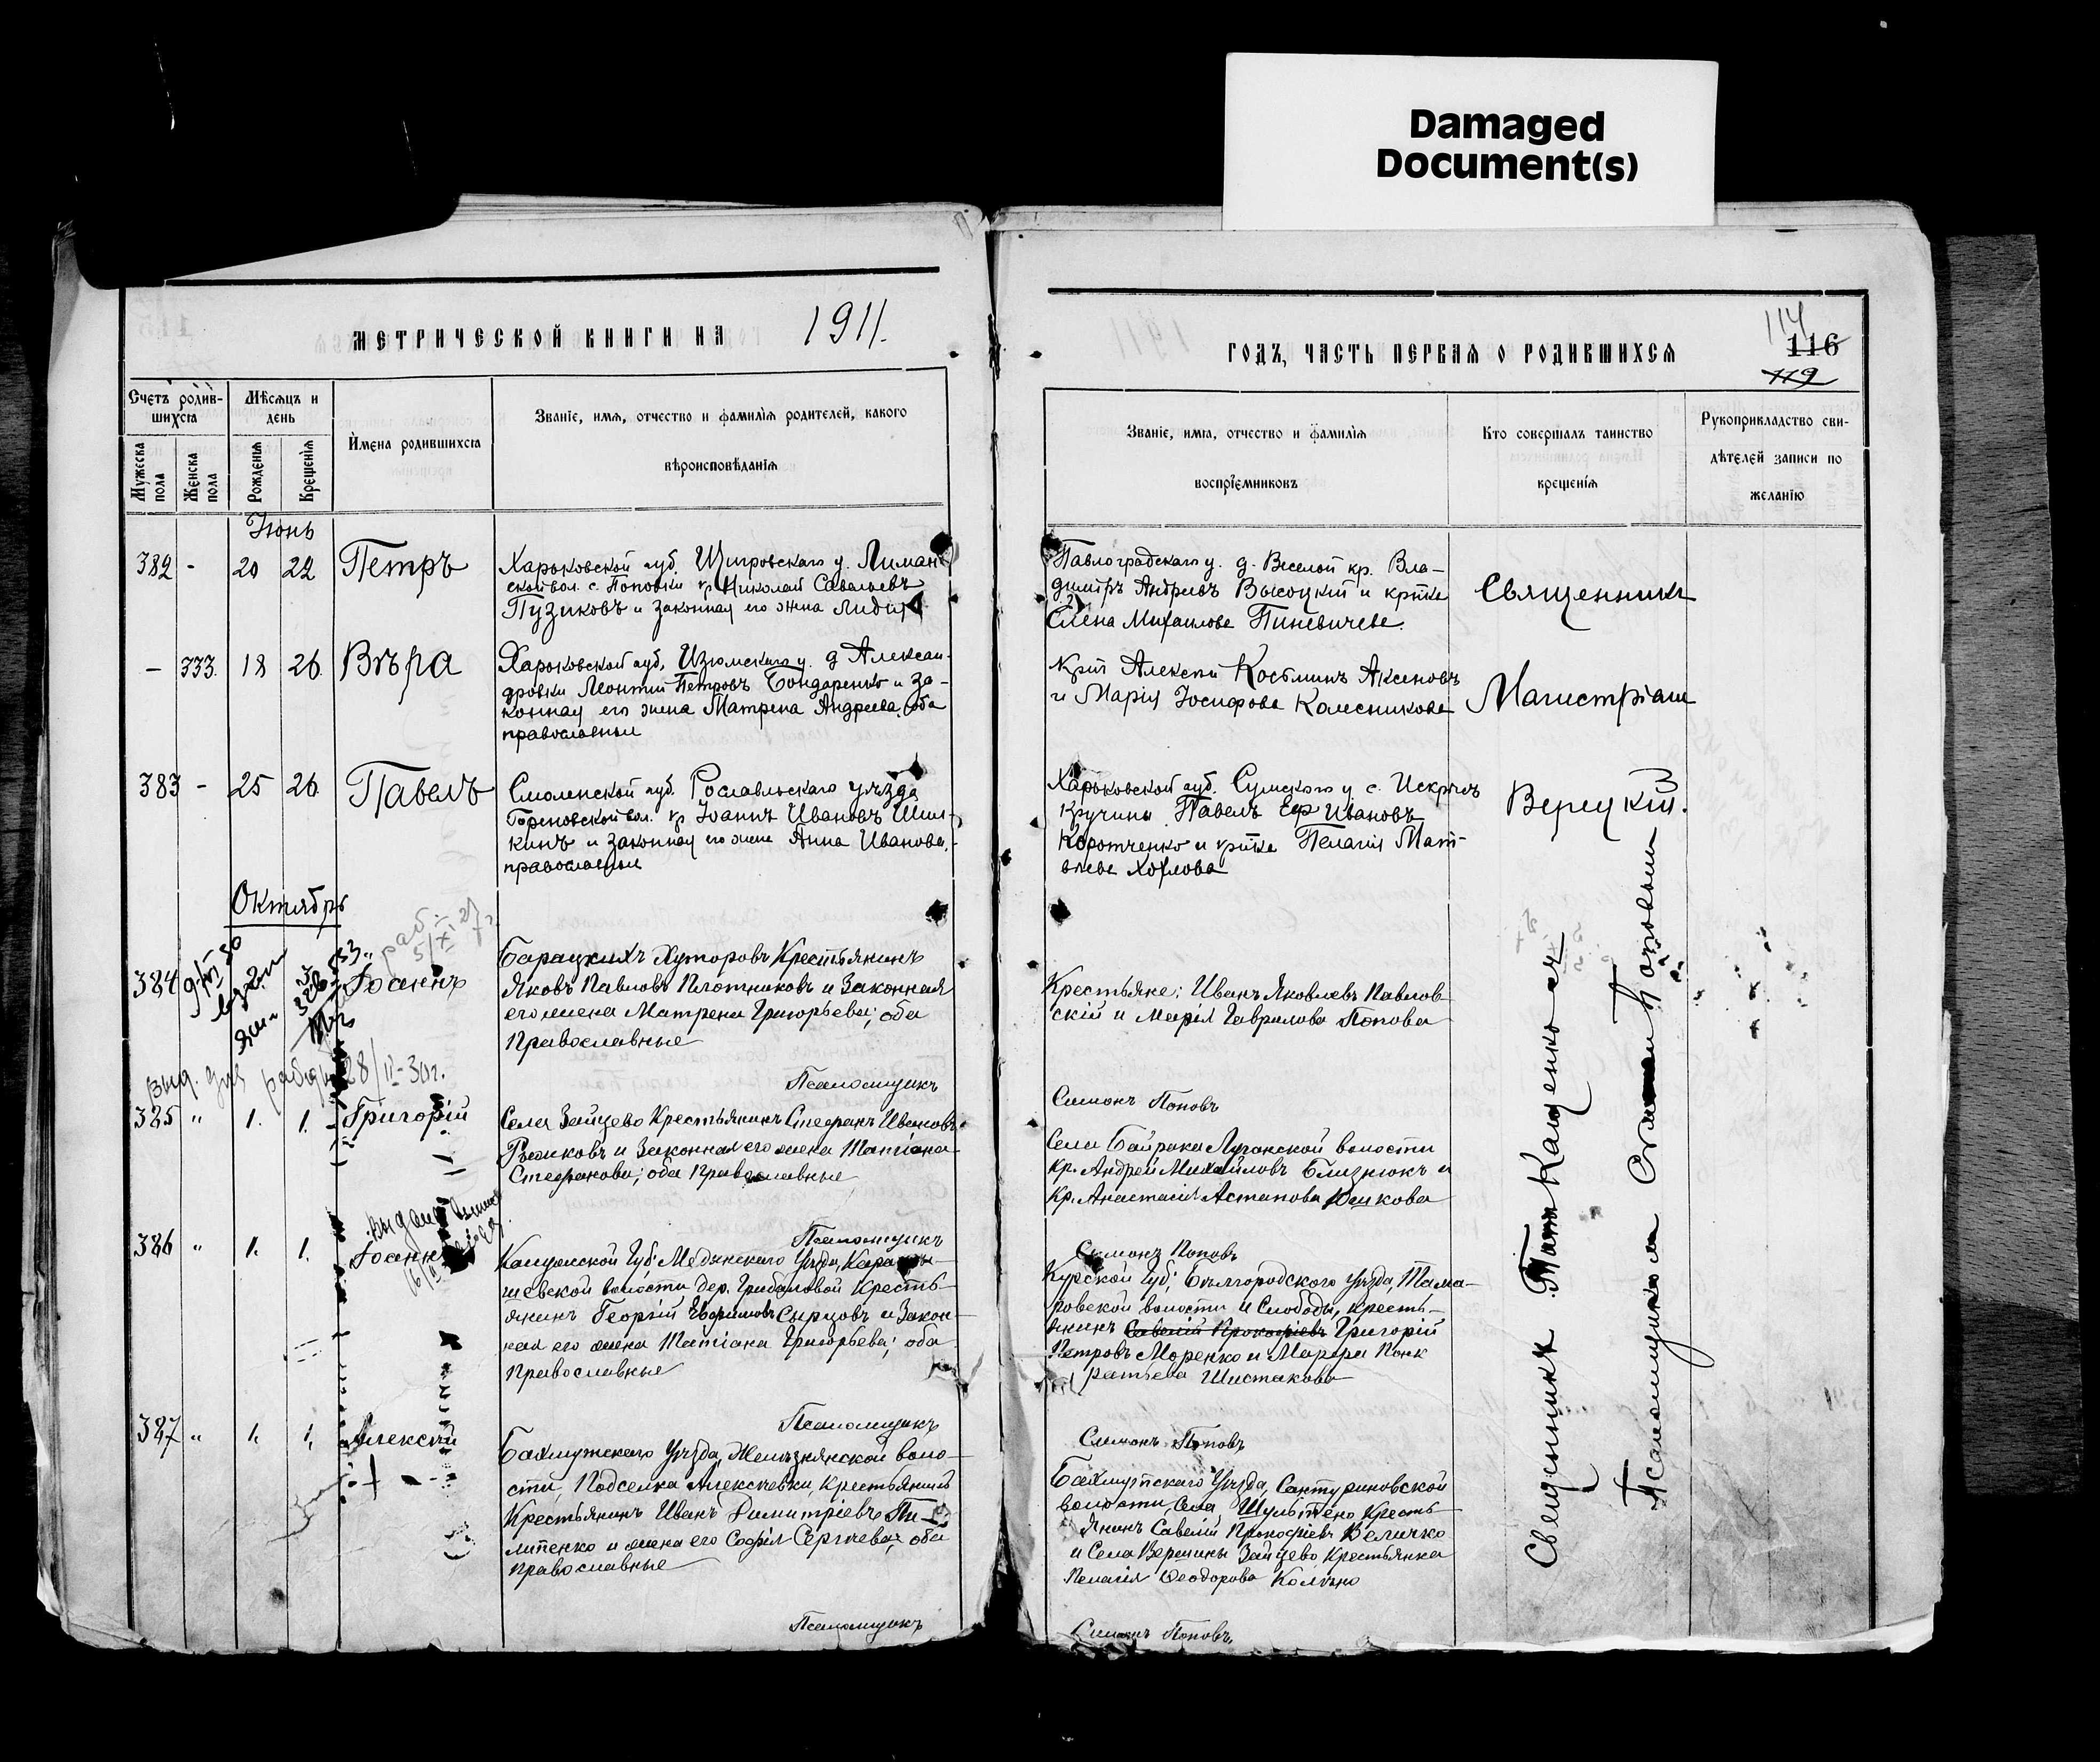 Damaged
Document(s)
МЕТРИЧЕСКОЙ КНИГИ НА 1911.
ГОДЪ, ЧАСТЬ ПЕРВАЯ О РОДИВШИХСЯ
114
116
119
Счетъ родив-
шихся
Мѣсяцъ и
день
Имена родившихся
Званіе, имя, отчество и фамилія родителей, какого
вѣроисповѣданія
Мужеска
пола
Женска
пола
Рожденія
Крещенія
Званіе, имя, отчество и фамилія
воспріемниковъ
Кто совершалъ таинство
крещенія
Рукоприкладство сви-
дѣтелей записи по
желанію
Іюнь
382 - 20 22 Петръ
Харьковской губ. у. Лиман-
ской вол. с. Поповки кр Николай Савельевъ
Пузиковъ и законная его жена Лидія
Павлоградскаго у. д. Веселой кр. Вла-
димиръ Андреевъ Высоцкій и
Елена Михаилова Пиневичева.
Священникъ
- 333. 18 26 Вѣра
Харьковской губ. Изюмскаго у. д Алексан-
дровки Леонтій Петровъ Бондаренко и за-
конная его жена Матрена Андреева, оба
православныи
Алексѣй Косьминъ Аксеновъ
и Марія Іосифова Колесникова
Магистріанъ
383 - 25 26 Павелъ
Смоленской губ. Рославльскаго уѣзда
вол. кр Іоаннъ Ивановъ
и законная его жена Анна Иванова,
православныи
Харьковской губ. Сумскаго у с.
Павелъ Ивановъ
Коротченко и Пелагія Мат-
вѣева Хохлова
Верецкій.
Октябрь
384 Іоаннъ
Барацкихъ Хуторовъ Крестьянинъ
Яковъ Павловъ Плотниковъ и Законная
его жена Матрена Григорьева; оба
Православные
Псаломщикъ
Крестьяне: Иванъ Яковлевъ Павлов-
скій и Марія Гаврилова Попова
Симонъ Поповъ
28/II-30г.
385 " 1. 1. Григорій
Села Зайцево Крестьянинъ Стефанъ Ивановъ
и Законная его жена Татіана
Стефанова; оба Православные
Псаломщикъ
Села Байрака Луганской волости
кр. Андрей Михайловъ Близнюкъ и
кр. Анастасія Астапова
Симонъ Поповъ
386 " 1. 1. Іоаннъ
Калужской Губ. Медынскаго Уѣзда,
волости дер. Грибановой Кресть-
янинъ Георгій Сырцовъ и Закон-
ная его жена Татіана Григорьева; оба
Православные
Псаломщикъ
Курской Губ. Бѣлгородскаго уѣзда, Тама-
ровской волости и Слободы, кресть-
янинъ Савелій Прокофіевъ Григорій
Петровъ Моренко и Марфа Панк-
ратьева Шистакова
Симонъ Поповъ
387 " 1. 1. Алексѣй
Бахмутскаго Уѣзда, Желѣзнянской воло-
сти, Подселка Алексѣевки, Крестьянинъ
Крестьянинъ Иванъ Димитріевъ Пи-
липенко и жена его Софія Сергѣева; оба
православные
Псаломщикъ
Бахмутскаго Уѣзда, Сантуриновской
волости, Села Шультено Кресть-
янинъ Савелій Прокофіевъ Величко
и Села Зайцево, Крестьянка
Пелагія Ѳеодорова
Симонъ Поповъ.
Священникъ
Псаломщикомъ Симономъ Поповымъ